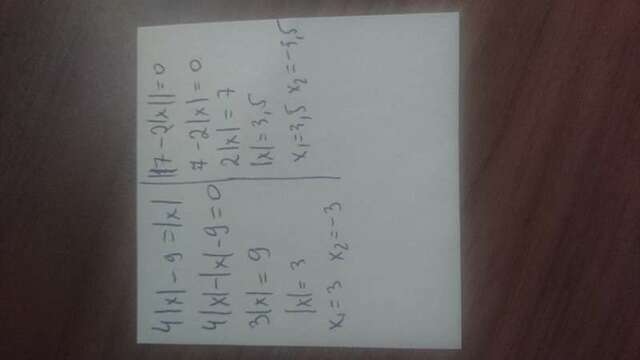 4|x| - 9 = |x|
4|x| - |x| - 9 = 0
3|x| = 9
|x| = 3
x₁ = 3 x₂ = -3
||7 - 2|x|| = 0
7 - 2|x| = 0
2|x| = 7
|x| = 3,5
x₁ = 3,5 x₂ = -3,5